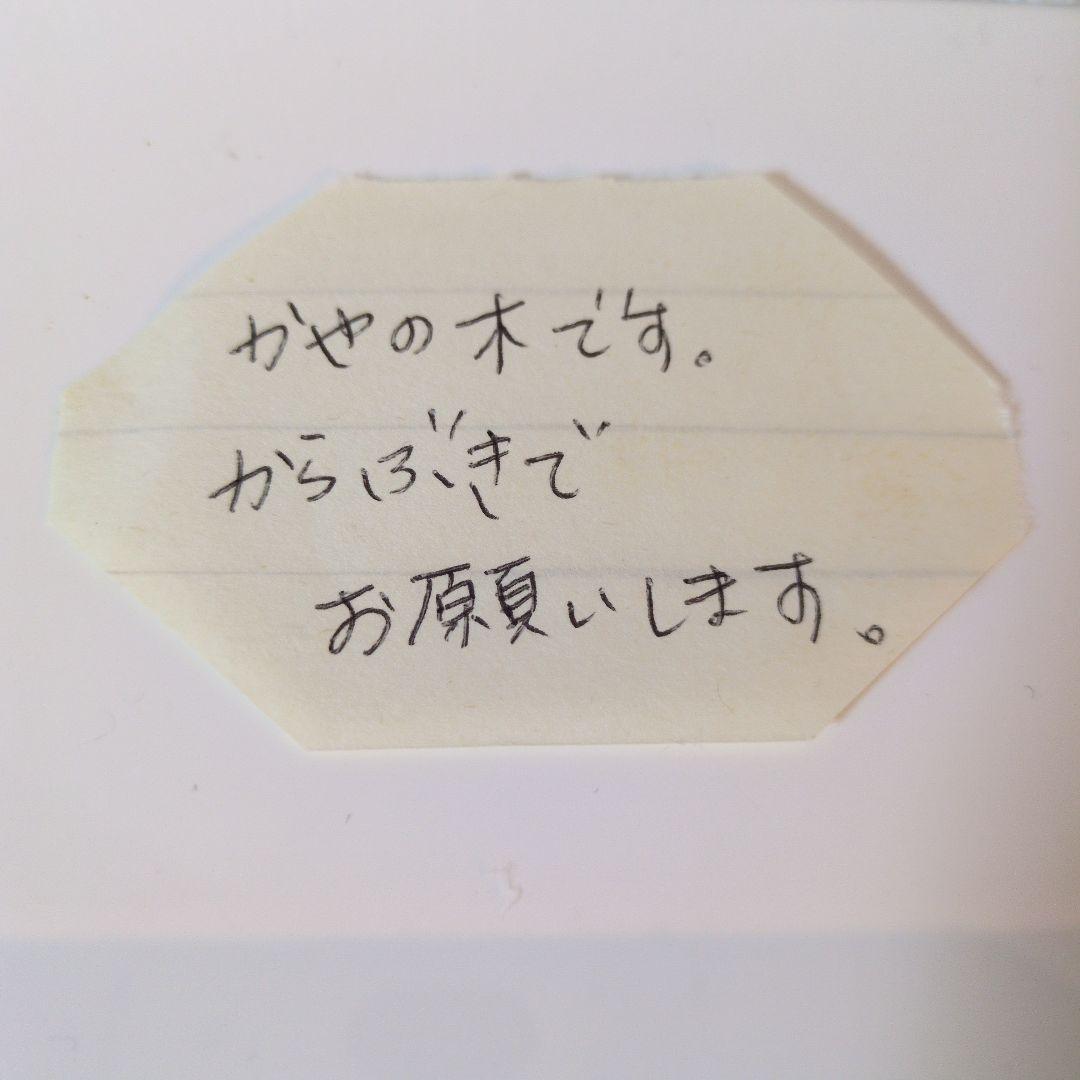 かやの木です。
からぶきで
お願いします。